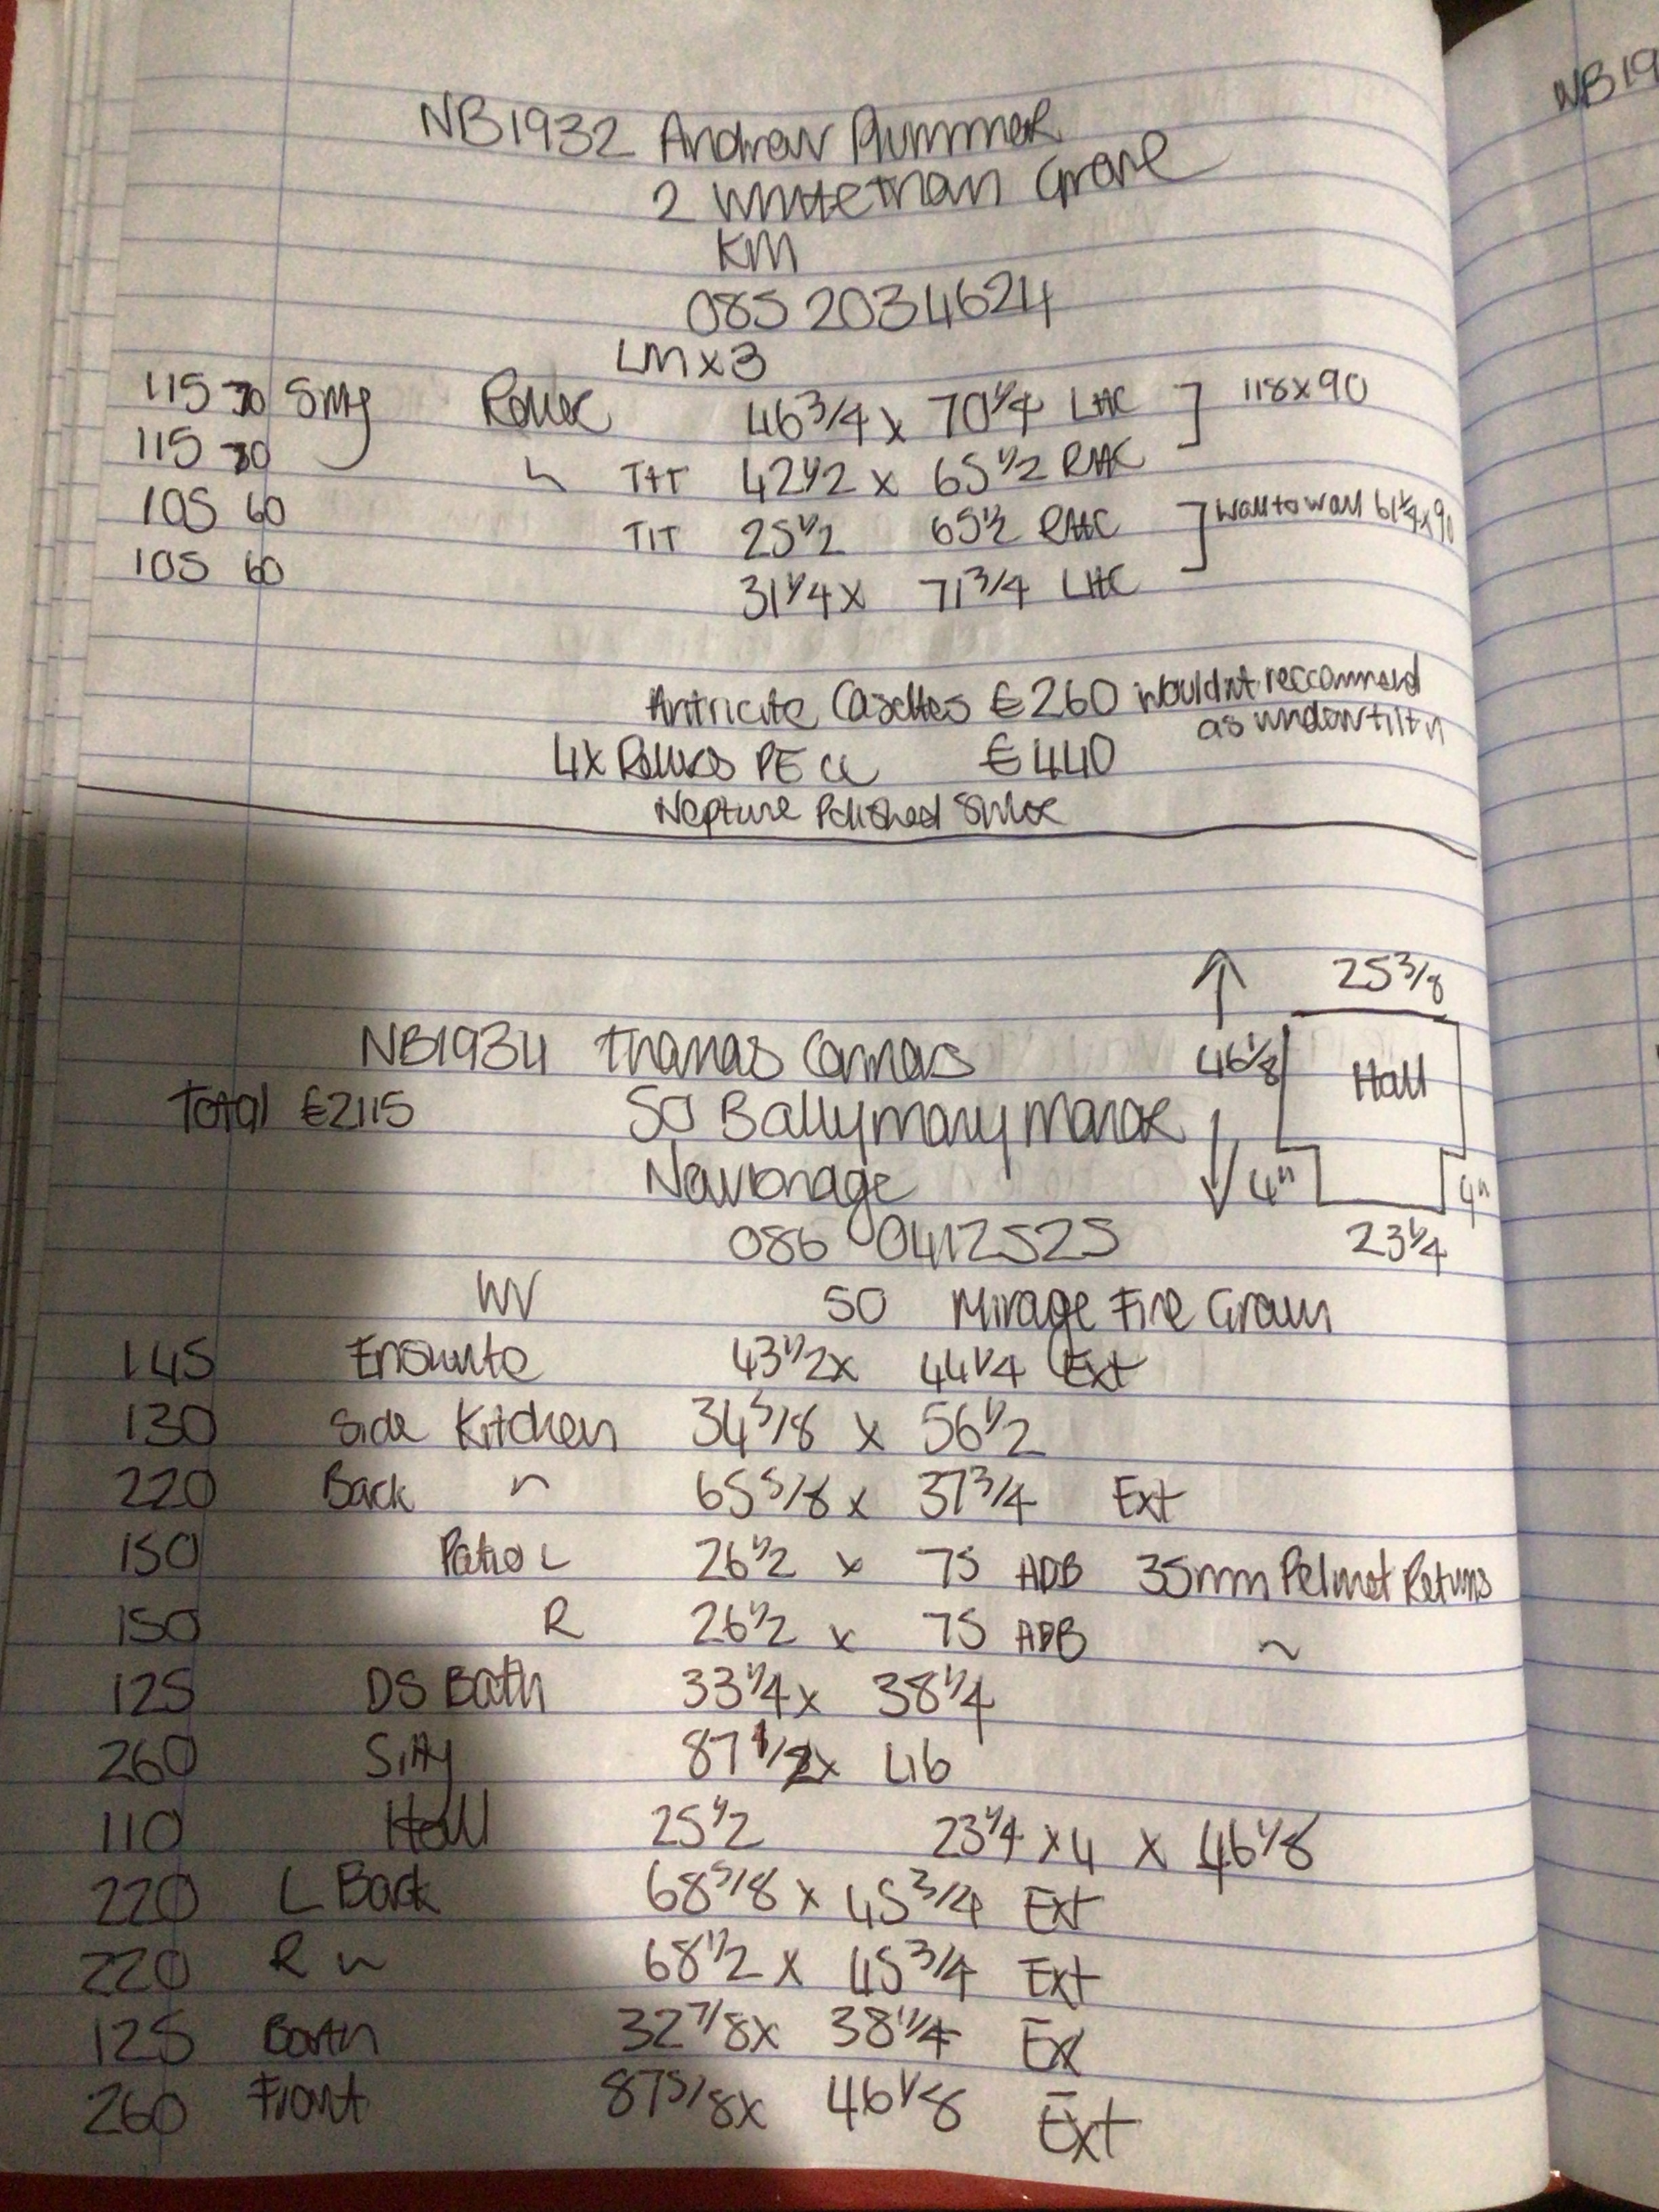 NB19
NB1932 Andrew Plummer
2 Whitethorn Grove
KM
085 2034624
LM x 3
115 70 Sittg Roller 46 3/4 x 70 1/4 LHC ] 118 x 90
115 70 " TIT 42 1/2 x 65 1/2 RHC
105 60 TIT 25 1/2 65 1/2 RHC ] Wall to wall 61 1/4 x 90
105 60 31 1/4 x 71 3/4 LHC
Antricite Casettes €260 wouldnt reccommend
as window tilt n
4x Rollers PE CC €440
Neptune Polished Silver
25 3/8
NB1934 Thomas Connors 46 1/8 Hall
Total €2115 50 Ballymany Manor
Newbridge 4" 4"
086 0412525 23 1/4
WV 50 Mirage Fine Grain
145 Ensuite 43 1/2 x 44 1/4 Ext
130 Side Kitchen 34 5/8 x 56 1/2
220 Back " 65 5/8 x 37 3/4 Ext
150 Patio L 26 1/2 x 75 HDB 35mm Pelmet Returns
150 R 26 1/2 x 75 HDB ~
125 DS Bath 33 1/4 x 38 1/4
260 Sittg 87 1/2 x 46
110 Hall 25 1/2 23 1/4 x 4 x 46 1/8
220 L Back 68 5/8 x 45 3/4 Ext
220 R " 68 1/2 x 45 3/4 Ext
125 Bath 32 7/8 x 38 1/4 Ex
260 Front 87 5/8 x 46 1/8 Ext